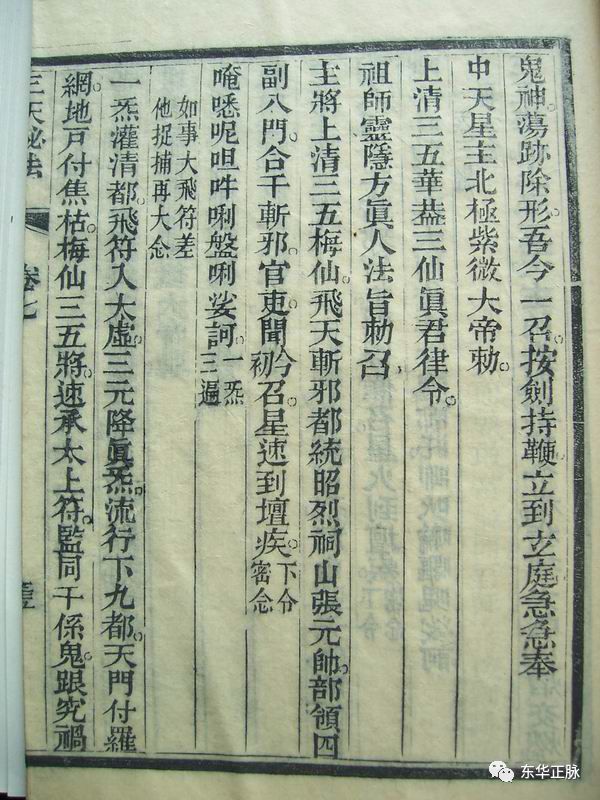 鬼神蕩跡除形吾今一召按劍持鞭立到玄庭急急奉
中天星主北極紫微大帝勅
上清三五華蓋三仙眞君律令
祖師靈隱方眞人法旨勅召
主將上清三五梅仙飛天斬邪都統昭烈祠山張元帥部領四
副八門合千斬邪官吏聞今初召星速到壇疾下令密念
唵㗭呢呾吽唎盤唎娑訶一炁三遍
如事大飛符差
他捉捕再大念
一炁灌清都飛符入太虛三元降眞炁流行下九都天門付羅
網地戸付焦枯梅仙三五將速承太上符監同干係鬼跟究禍
三天秘法
卷七
东华正脉